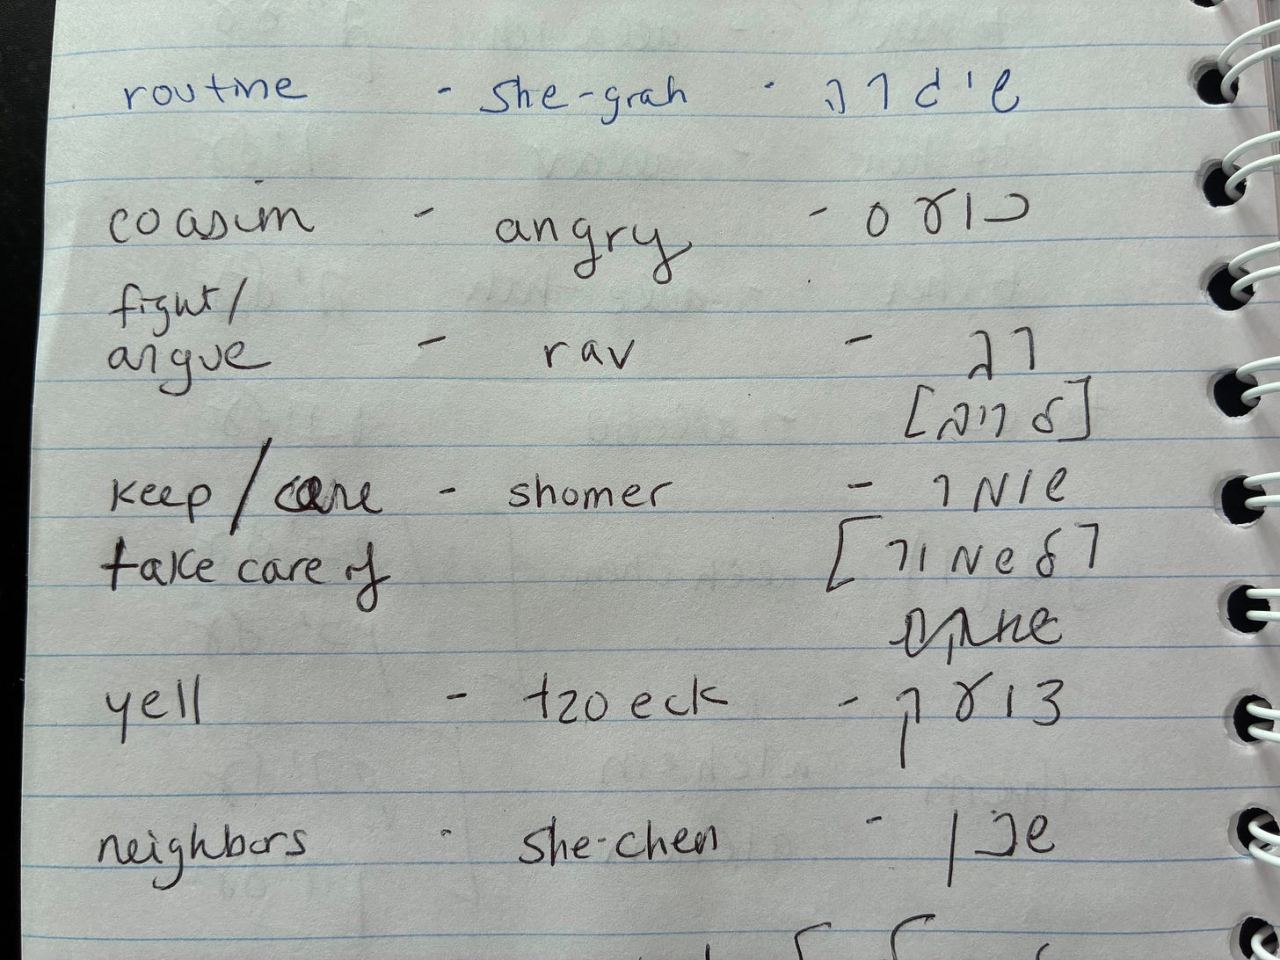 routine - she-grah - שיגרה
coasim - angry - כועס
fight/
argue - rav - רב
[לריב]
keep/care - shomer - שומר
take care of [לשמור]
yell - tzoeck - צועק
neighbors - she-chen - שכן